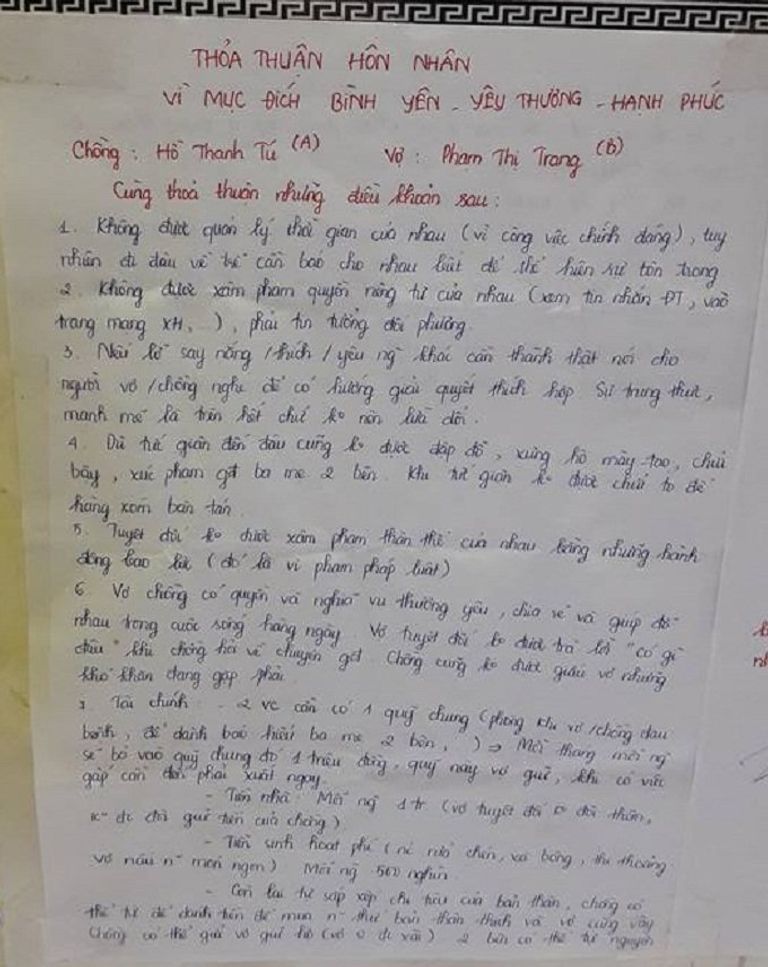 THỎA THUẬN HÔN NHÂN
VÌ MỤC ĐÍCH BÌNH YÊN - YÊU THƯƠNG - HẠNH PHÚC
Chồng : Hồ Thanh Tú (A) Vợ : Phạm Thị Trang (B)
Cùng thoả thuận những điều khoản sau :
1. Không được quản lý thời gian của nhau (vì công việc chính đáng), tuy
nhiên đi đâu về trễ cần báo cho nhau biết để thể hiện sự tôn trọng
2. Không được xâm phạm quyền riêng tư của nhau (xem tin nhắn ĐT, vào
trang mạng XH, ...), phải tin tưởng đối phương.
3. Nếu lỡ say nắng / thích / yêu ng khác cần thành thật nói cho
người vợ / chồng nghe để có hướng giải quyết thích hợp. Sự trung thực,
mạnh mẽ là trên hết chứ ko nên lừa dối.
4. Dù tức giận đến đâu cũng ko được đập đồ, xưng hô mày - tao, chửi
bậy, xúc phạm gđ ba mẹ 2 bên. Khi tức giận ko được chửi to để
hàng xóm bàn tán.
5. Tuyệt đối ko được xâm phạm thân thể của nhau bằng những hành
động bạo lực (đó là vi phạm pháp luật)
6. Vợ chồng có quyền và nghĩa vụ thương yêu, chia sẻ và giúp đỡ
nhau trong cuộc sống hàng ngày. Vợ tuyệt đối ko được trả lời "có gì
đâu" khi chồng hỏi về chuyện gđ. Chồng cũng ko được giấu vợ những
khó khăn đang gặp phải.
7. Tài chính : - 2 vc cần có 1 quỹ chung (phòng khi vợ / chồng đau
bệnh, để dành báo hiếu ba mẹ 2 bên, ) => Mỗi tháng mỗi ng
sẽ bỏ vào quỹ chung đó 1 triệu đồng, quỹ này vợ giữ, khi có việc
gấp cần đến phải xuất ngay.
- Tiền nhà : Mỗi ng 1 tr (vợ tuyệt đối
đi đòi giữ tiền của chồng)
- Tiền sinh hoạt phí ( xà bông, thi thoảng
vợ nấu n~ món ngon) Mỗi ng 500 nghìn.
- Còn lại tự sắp xếp chi tiêu của bản thân, chồng có
thể tự để dành tiền để mua n~ thứ bản thân thích và vợ cũng vậy
Chồng có thể gửi vợ giữ hộ (vợ đi xài) 2 bên có thể tự nguyện